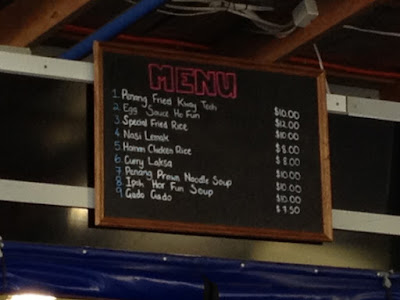 MENU
1. Penang Fried Kway Teoh $10.00
2. Egg Sauce Ho Fun $12.00
3. Special Fried Rice $10.00
4. Nasi Lemak $8.00
5. Hainan Chicken Rice $8.00
6. Curry Laksa $10.00
7. Penang Prawn Noodle Soup $10.00
8. Ipoh Hor Fun Soup $10.00
9. Gado Gado $7.50